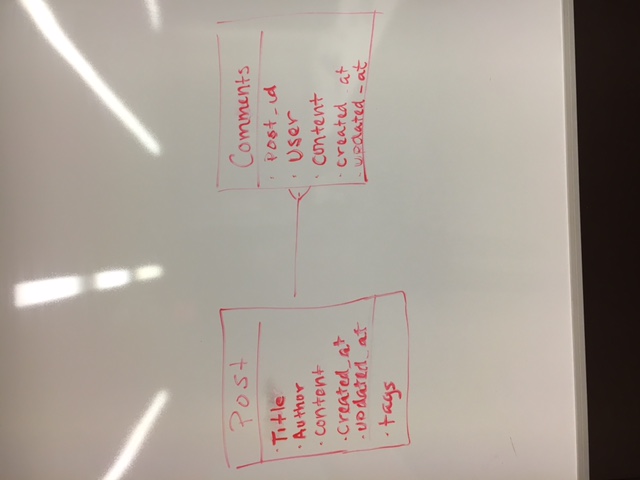 Post
· Title
· Author
· content
· created_at
· updated_at
· tags
Comments
· Post_id
· User
· content
· created_at
· updated_at